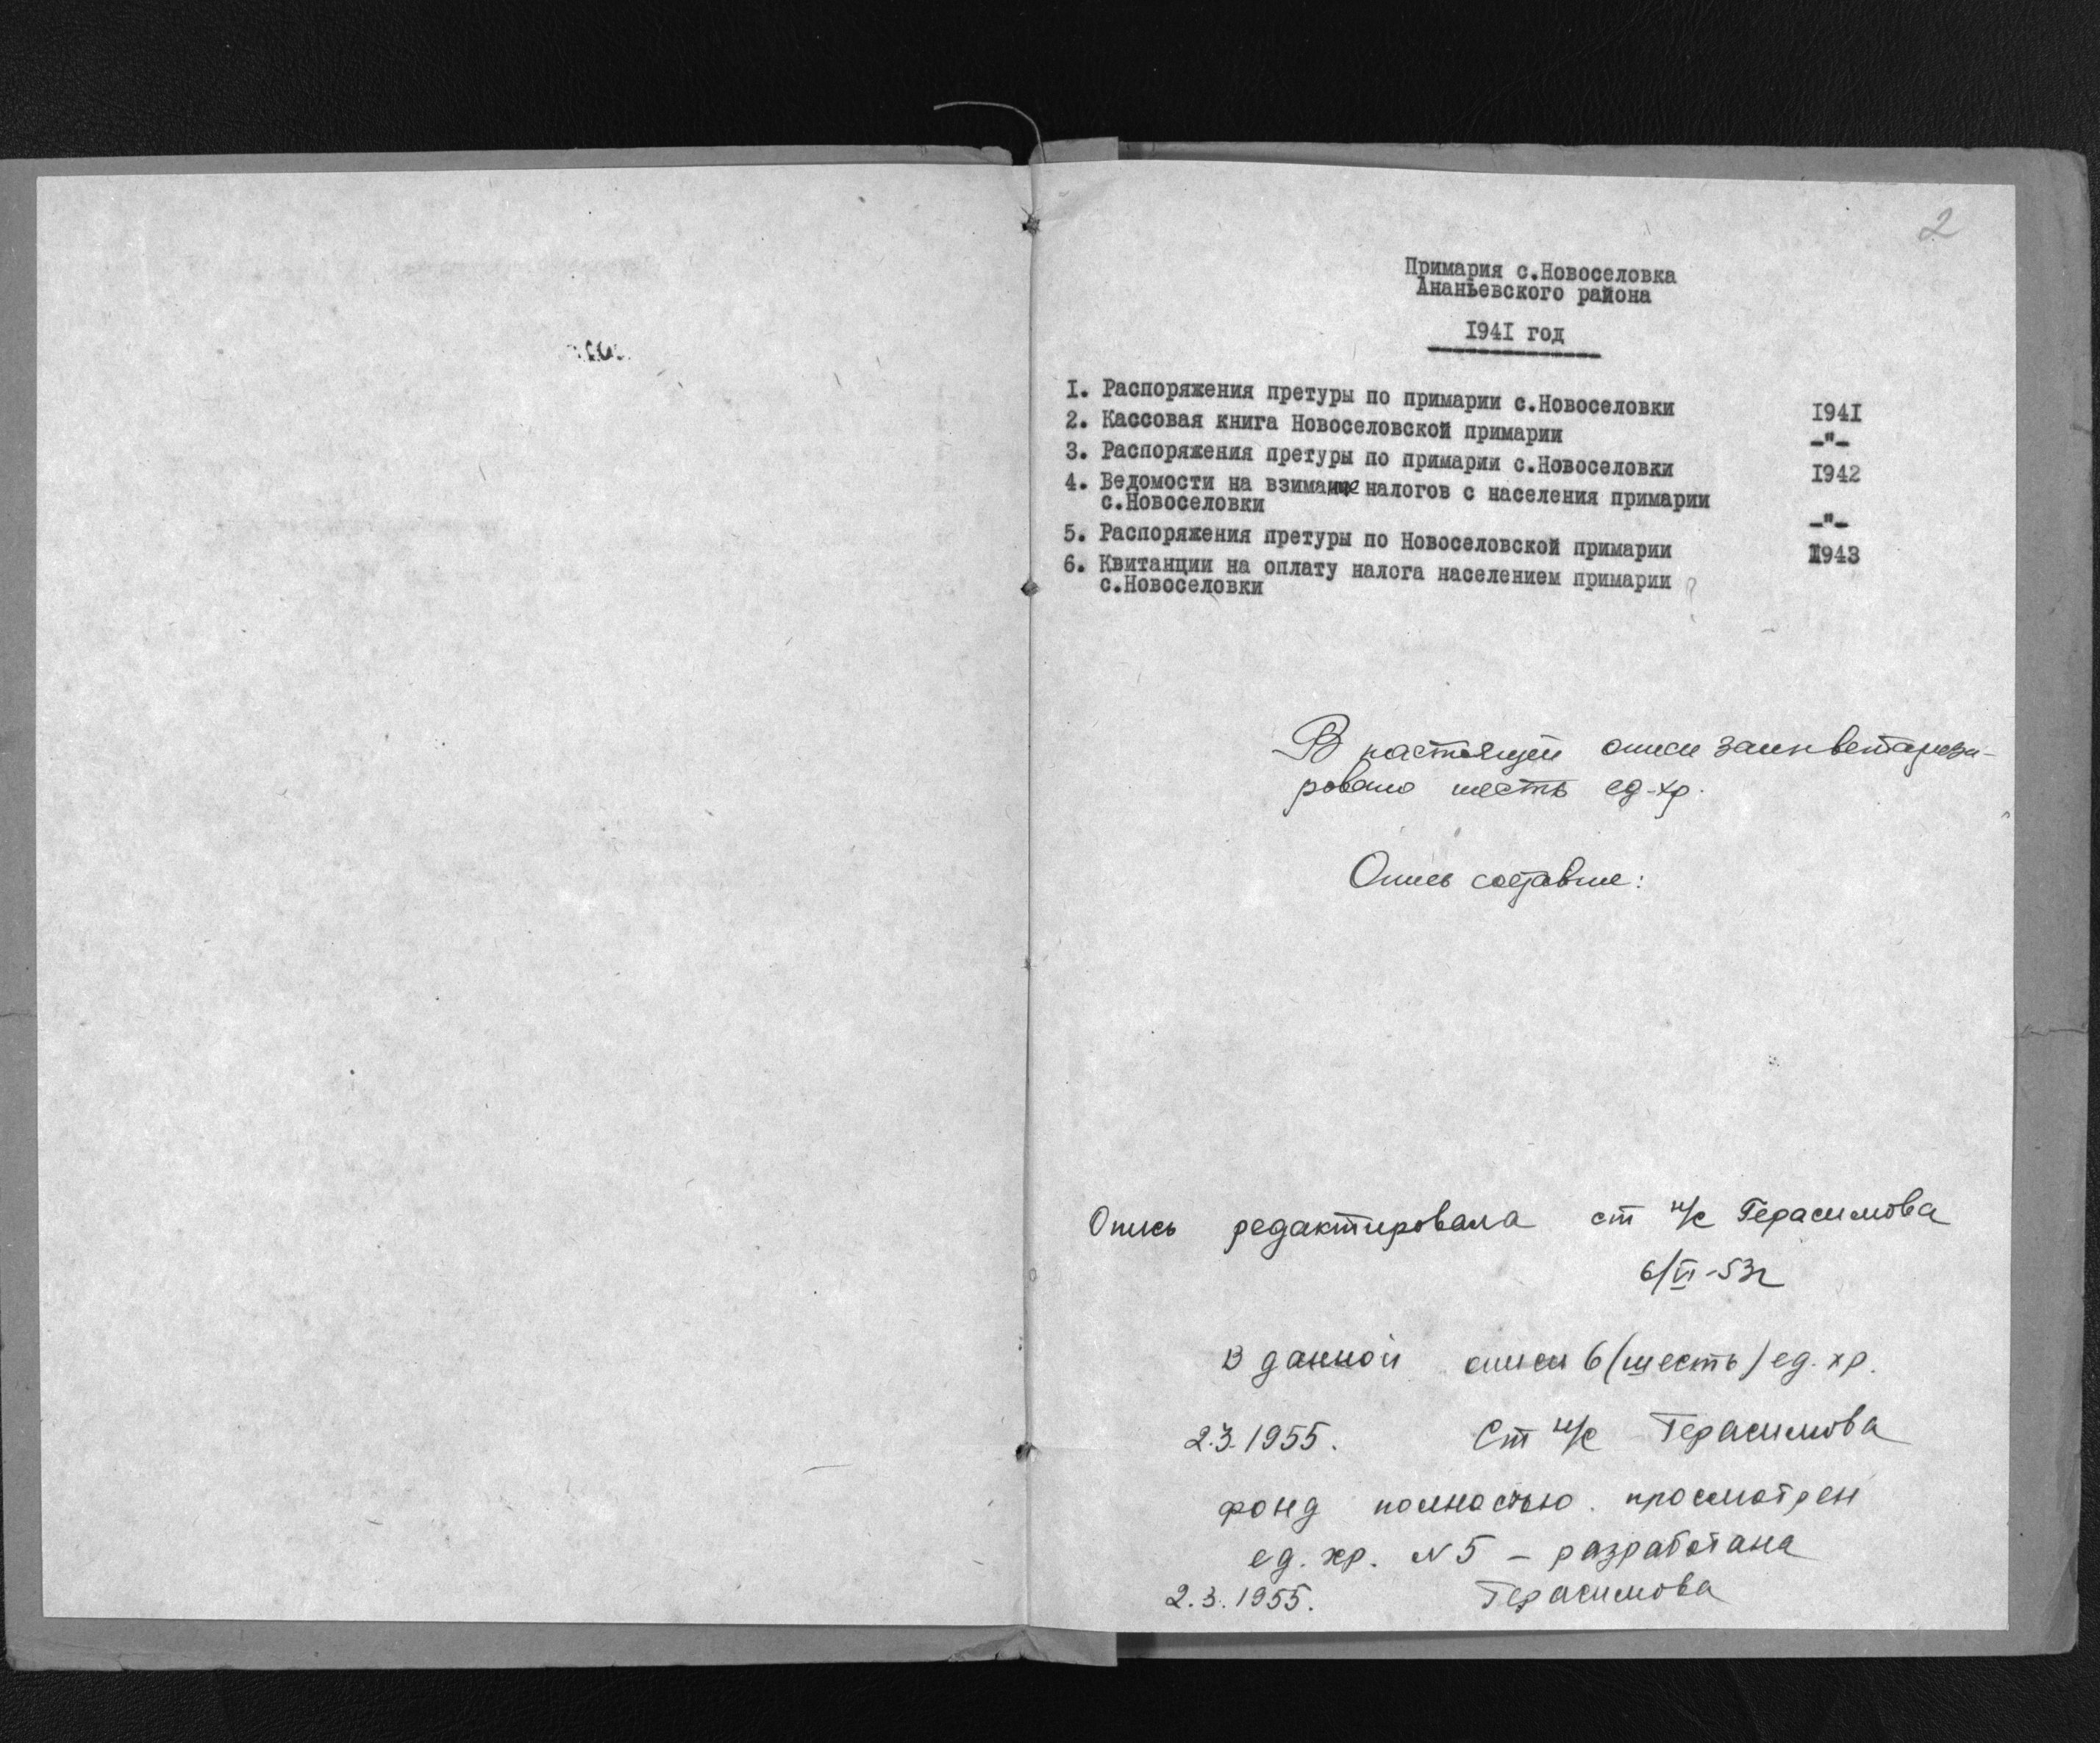 2
Примария с.Новоселовка
Ананьевского района
1941 год
1. Распоряжения претуры по примарии с.Новоселовки 1941
2. Кассовая книга Новоселовской примарии -"-
3. Распоряжения претуры по примарии с.Новоселовки 1942
4. Ведомости на взимание налогов с населения примарии
с.Новоселовки -"-
5. Распоряжения претуры по Новоселовской примарии 1943
6. Квитанции на оплату налога населением примарии ?
с.Новоселовки
В настоящей описи заинвентаризи-
ровано шесть ед.хр.
Опись составил:
Опись редактировала ст н/с Герасимова
6/VI-53г
В данной описи 6 (шесть) ед. хр.
2.3.1955. Ст н/с Герасимова
фонд полностью просмотрен
ед. хр. N 5 – разработана
2.3.1955. Герасимова